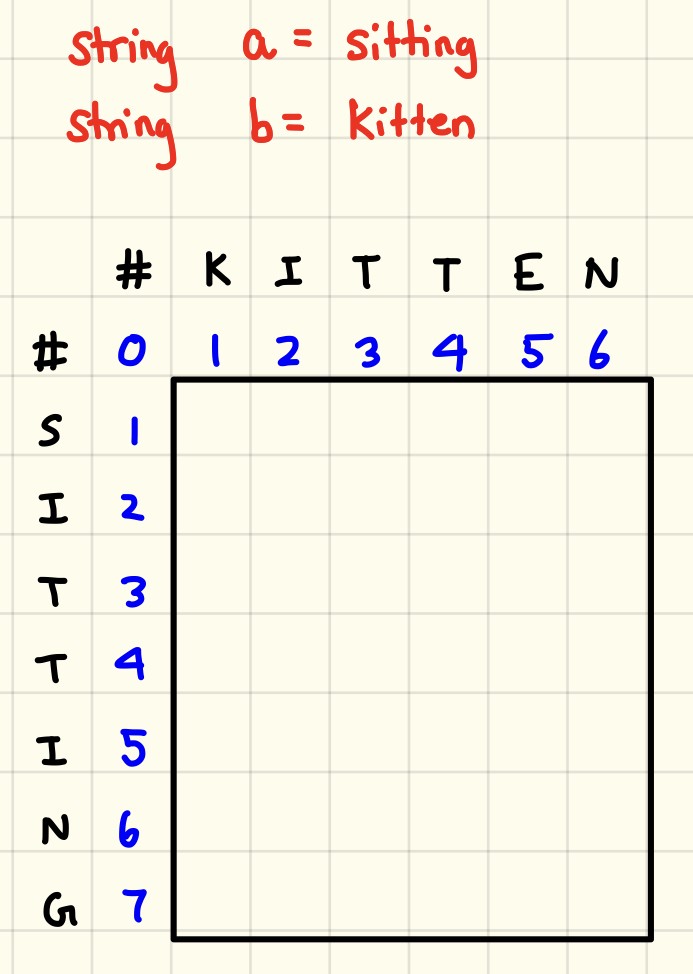 string a = sitting
string b = kitten
# K I T T E N
# 0 1 2 3 4 5 6
S 1
I 2
T 3
T 4
I 5
N 6
G 7